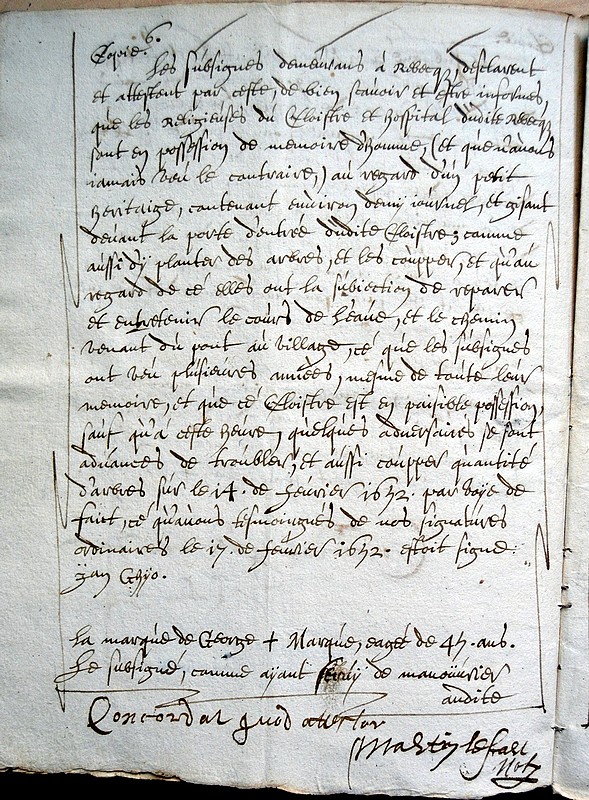 Copie. 6.
Les subsignes demeurans à Rebecq, desclarent
et attestent par ceste, de bien scavoir et estre informes,
que les Religieuses du Cloistre et Hospital dudite Rebecq
sont en possession de memoire d'homme, (et que n'avons
iamais veu le contraire,) au regard d'un petit
heritaige, contenant environ demy iournel, et gisant
devant la porte d'entrée dudite Cloistre; comme
aussi d'y planter des arbres, et les coupper, et qu'au
regard de cé elles ont la subiection de reparer
et entretenir le cours de l'eaue, et le chemin
venant du pont au village, ce que les subsignes
ont veu plusieures années, mesme de toute leur
memoire, et que cé Cloistre est en paisible possession,
sauf qu'à ceste heure, quelques adversaires se sont
advances de troubler, et aussi coupper quantité
d'arbres sur le 14. de febvrier 1632. par voye de
faict, cé qu'avons tesmoingnés de nos signatures
ordinaires le 17. de febvrier 1632. estoit signé:
Jan Ghyo.
La marque de George + Marque, eagé de 47. ans.
Le subsigné, comme ayant servy de manouvrier
audite
Concordat quod attestor
Martin le
Not